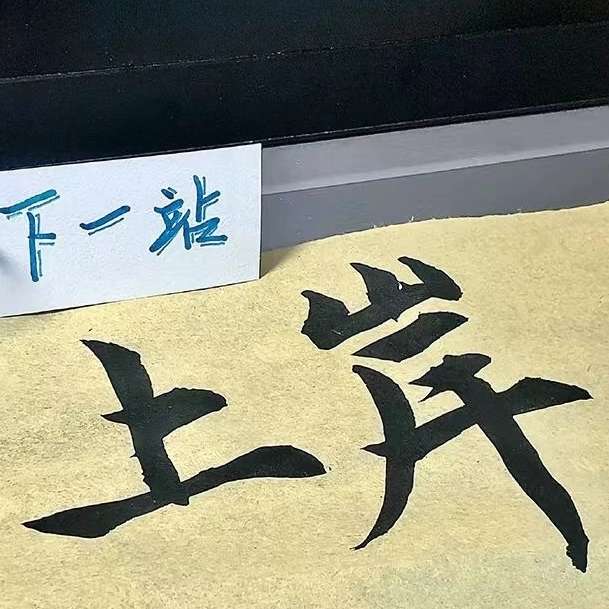 下一站
上岸